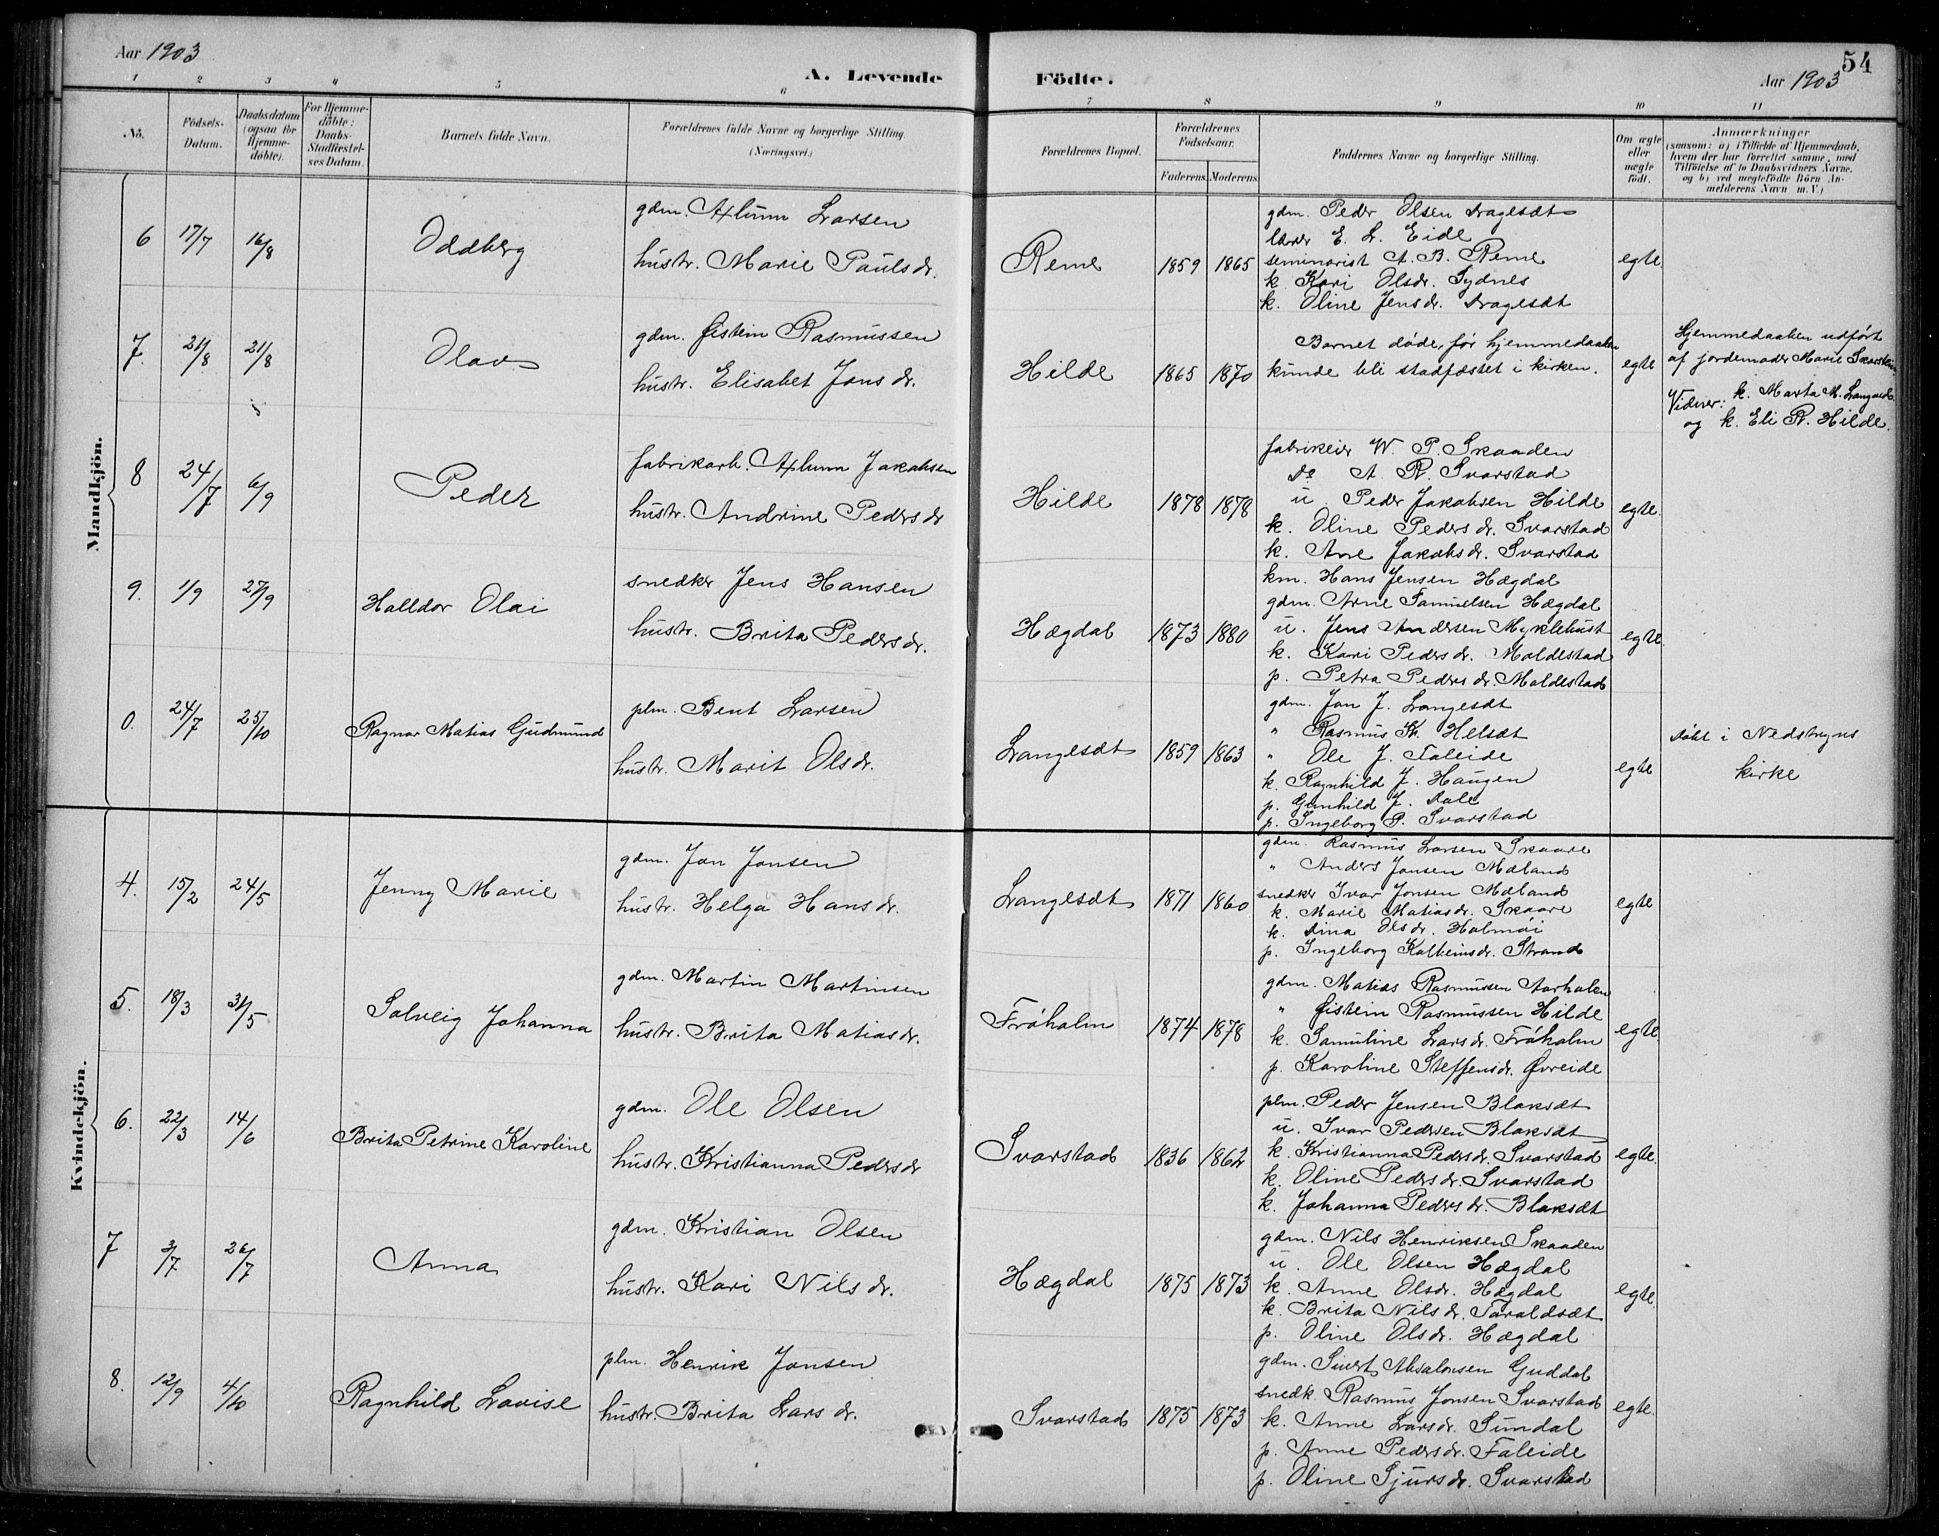 Aar 1903
A. Levende Födte.
Aar 1903
54
1 2 3 4 5 6 7 8 9 10 11
No.
Födsels-Datum.
Daabsdatum (ogsaa for Hjemme-döbte).
For Hjemme-döbte: Daabs-Stadfæstel-ses Datum.
Barnets fulde Navn.
Forældrenes fulde Navne og borgerlige Stilling. (Næringsvei.)
Forældrenes Bopæl.
Forældrenes Födselsaar.
Faderens. Moderens.
Faddernes Navne og borgerlige Stilling.
Om ægte eller uægte födt.
Anmærkninger
(saasom: a) i Tilfælde af Hjemmedaab,
hvem der har forrettet samme, med
Tilföielse af to Daabsvidners Navne.
og b) ved uægtefödte Börn An-
melderens Navn m. V.)
Mandkjön.
6 17/7 16/8 Oddberg
gdm. Axlum Larsen
hustr. Marie Paulsdr.
Reme 1859 1865
gdm. Peder Olsen Dragesæt
lærer E. L. Eide
seminarist A. B. Reme
k. Kari Olsdr. Sydnes
k. Oline Jensdr. Dragesæt
egte.
7. 21/8 21/8 Olav
gdm. Øistein Rasmussen
hustr. Elisabet Jonsdr.
Hilde 1865 1870
Barnet døde, før hjemmedaaben
kunde bli stadfæstet i kirken.
egte
Hjemmedaaben udført
af jordemoder Marie Skarstein
Vidner: k. Marta M. Langsæt
og k. Eli R. Hilde.
8 24/7 6/9 Peder
fabrikarb. Axlum Jakobsen
hustr. Andrine Pedersdr
Hilde 1878 1878
fabrikeier W. P. Skaaden
Do A. R. Svarstad
u. Peder Jakobsen Hilde
k. Oline Pedersdr. Svarstad
k. Ane Jakobsdr. Svarstad
egte.
9. 1/9 27/9 Halldor Olai
snedker Jens Hansen
hustr. Brita Pedersdr.
Hægdal 1873 1880
km. Hans Jensen Hægdal
gdm. Arne Samuelsen Hægdal
u. Jens Andersen Myklebust
k. Kari Pedersdr. Moldestad
p. Petra Pedersdr. Moldestad
egte.
0. 24/7 25/10 Ragnar Matias Gudmund
plm. Bent Larsen
hustr. Marit Olsdr.
Langesæt 1859 1863
gdm. Jon J. Langesæt
" Rasmus K. Helsæt
" Ole J. Faleide
k. Ragnhild J. Haugen
p. Gunhild J. Dale
p. Ingeborg P. Svarstad
egte
døbt i Nedstryns
kirke
Kvindekjön.
4. 15/2 24/5 Jenny Marie
gdm. Jon Jonsen
hustr. Helga Hansdr.
Langesæt 1871 1860
gdm. Rasmus Larsen Skaare
" Anders Jonsen Mæland
snedker Ivar Jonsen Mæland
k. Marie Matiasdr. Skaare
k. Dina Olsdr. Holmøi
p. Ingeborg Kolbeinsdr. Strand
egte
5. 18/3 31/5 Solveig Johanna
gdm. Martin Martinsen
hustr. Brita Matiasdr.
Frøholm 1874 1878
gdm. Matias Rasmussen Aarholen
" Øistein Rasmussen Hilde
k. Samuline Larsdr. Frøholm
p. Karoline Steffensdr. Øvreide
egte.
6. 22/3 14/6 Brita Petrine Karoline
gdm. Ole Olsen
hustr. Kristianna Pedersdr
Svarstad 1836 1862
plm. Peder Jensen Blaksæt
u. Ivar Pedersen Blaksæt
k. Kristianna Pedersdr. Svarstad
k. Oline Pedersdr. Svarstad
k. Johanna Pedersdr. Blaksæt
egte.
7 3/7 26/7 Anna
gdm. Kristian Olsen
hustr. Kari Nilsdr.
Hægdal 1875 1873
gdm. Nils Henriksen Skaaden
u. Ole Olsen Hægdal
k. Anne Olsdr. Hægdal
k. Brita Nilsdr. Taraldsæt
p. Oline Olsdr. Hægdal
egte.
8. 12/9 4/10 Ragnhild Lovise
plm. Henrik Jonsen
hustr. Brita Larsdr.
Svarstad 1875 1873
gdm. Sivert Absalonsen Guddal
snedk. Rasmus Jonsen Svarstad
k. Anne Larsdr. Sundal
p. Anne Pedersdr. Faleide
p. Oline Sjursdr. Svarstad
egte.